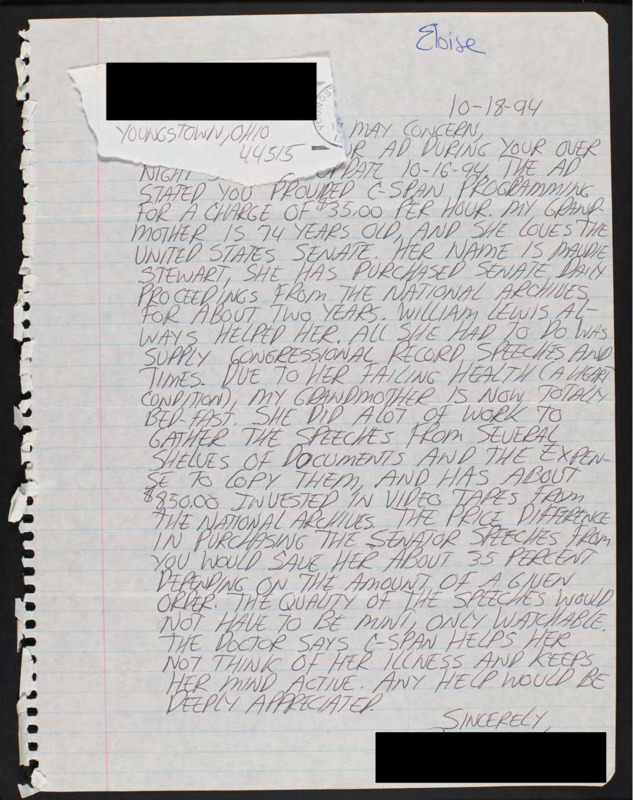 Eloise
10-18-94
YOUNGSTOWN, OHIO
44515
MAY CONCERN,
UR AD DURING YOUR OVER
NIGHT UPDATE 10-16-94. THE AD
STATED YOU PROVIDED C-SPAN PROGRAMMING
FOR A CHARGE OF $35.00 PER HOUR. MY GRAND-
MOTHER IS 74 YEARS OLD, AND SHE LOVES THE
UNITED STATES SENATE. HER NAME IS MAUDIE
STEWART, SHE HAS PURCHASED SENATE DAILY
PROCEEDINGS FROM THE NATIONAL ARCHIVES,
FOR ABOUT TWO YEARS. WILLIAM LEWIS AL-
WAYS HELPED HER. ALL SHE HAD TO DO WAS
SUPPLY CONGRESSIONAL RECORD SPEECHES AND
TIMES. DUE TO HER FAILING HEALTH (A HEART
CONDITION), MY GRANDMOTHER IS NOW TOTALLY
BED-FAST. SHE DID A LOT OF WORK TO
GATHER THE SPEECHES FROM SEVERAL
SHELVES OF DOCUMENTS AND THE EXPEN-
SE TO COPY THEM, AND HAS ABOUT
INVESTED IN VIDEO TAPES FROM
THE NATIONAL ARCHIVES. THE PRICE DIFFERENCE
IN PURCHASING THE SENATOR SPEECHES FROM
YOU WOULD SAVE HER ABOUT 35 PERCENT
DEPENDING ON THE AMOUNT OF A GIVEN
ORDER. THE QUALITY OF THE SPEECHES WOULD
NOT HAVE TO BE MINT, ONLY WATCHABLE.
THE DOCTOR SAYS C-SPAN HELPS HER
NOT THINK OF HER ILLNESS AND KEEPS
HER MIND ACTIVE. ANY HELP WOULD BE
DEEPLY APPRECIATED
SINCERELY,